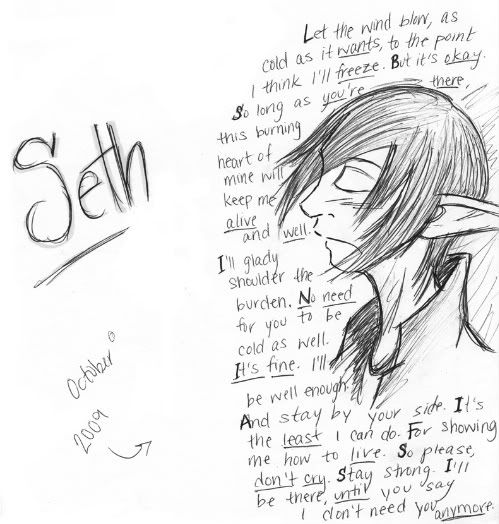 Seth
October
2009
Let the wind blow, as
cold as it wants, to the point
I think I'll freeze. But it's okay.
So long as you're there,
this burning
heart of
mine will
keep me
alive
and well.
I'll glady
shoulder the
burden. No need
for you to be
cold as well.
It's fine. I'll
be well enough.
And stay by your side. It's
the least I can do. For showing
me how to live. So please,
don't cry. Stay strong. I'll
be there, until you say
I don't need you anymore.